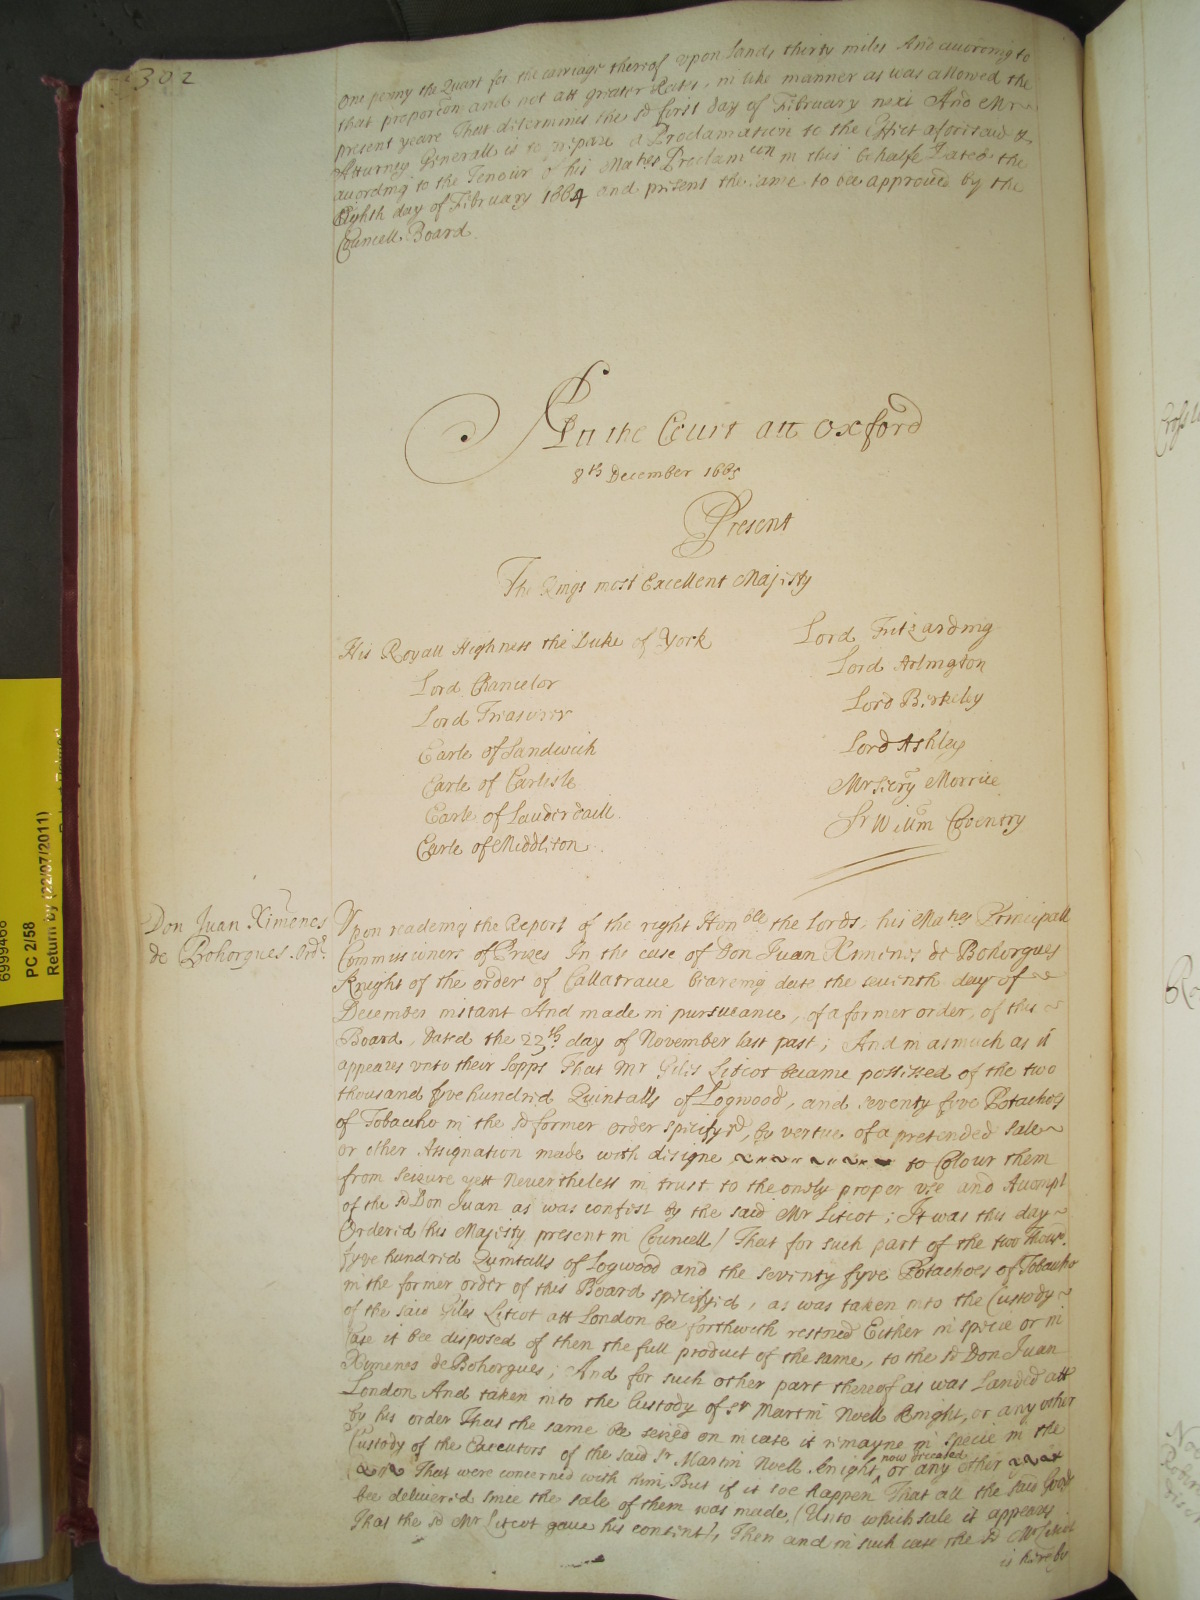 302
One penny the Quart for the carriage thereof upon lands thirty miles And according to
that proporcon and not att greater Rates, in like manner as was allowed the
present yeare That determines the sd first day of February next And Mr
Atturney Generall is to prepare a Proclamation to the Effect aforesaid &
according to the Tenour of his Maties Proclamcon in this behalfe Dated the
Eighth day of February 1664 and present the same to bee approved by the
Councell Board.
In the Court att Oxford
8th December 1665
Present
The Kings most Excellent Majesty
His Royall Highness the Duke of York
Lord Chancelor
Lord Treasurer
Earle of Sandwich
Earle of Carlisle
Earle of Lauderdaill.
Earle of Middleton.
Lord Fitzarding
Lord Arlington
Lord Berkeley
Lord Ashley
Mr Secry Morrice
Sr Willm Coventry
Don Juan Ximenes
de Bohorgues Ordr.
Upon reading the Report of the right Honble the Lords, his Maties Principall
Commissioners of Prizes In the case of Don Juan Ximenes de Bohorgues
Knight of the order of Callatrave bearing date the seventh day of
December instant And made in pursueance, of a former order, of this
Board, Dated the 22th day of November last past; And in asmuch as it
appeares unto their Lopps That Mr Giles Litcot became possessed of the two
thousand fyve hundred Quintalls of Logwood, and seventy fyve Potachoes
of Tobaccho in the sd former order specifyed, by vertue of a pretended sale
or other Assignation made with designe to Colour them
from seizure yett Nevertheless in trust to the onely proper use and Accompt
of the sd Don Juan as was confest by the said Mr Litcot; It was this day
Ordered (his Majesty present in Councell) That for such part of the two Thous.
fyve hundred Quintalls of Logwood and the seventy fyve Potachoes of Tobaccho
in the former order of this Board specifyed, as was taken into the Custody
of the said Giles Litcot att London bee forthwith restored Either in specie or in
Case it bee disposed of then the full product of the same, to the sd Don Juan
Ximenes de Bohorgues; And for such other part thereof as was Landed att
London And taken into the Custody of Sr Martin Noell Knight, or any other
by his order That the same be seized on in case it remayne in specie in the
Custody of the Executors of the said Sr Martin Noell Knight, now deceased or any other
That were concerned with him, But if it soe happen That all the said Goods
bee delivered since the sale of them was made, (Unto which sale it appears
That the sd Mr Litcot gave his consent), Then and in such case the sd Mr Litcot
is hereby
6999468
PC 2/58
Return by (22/07/2011)